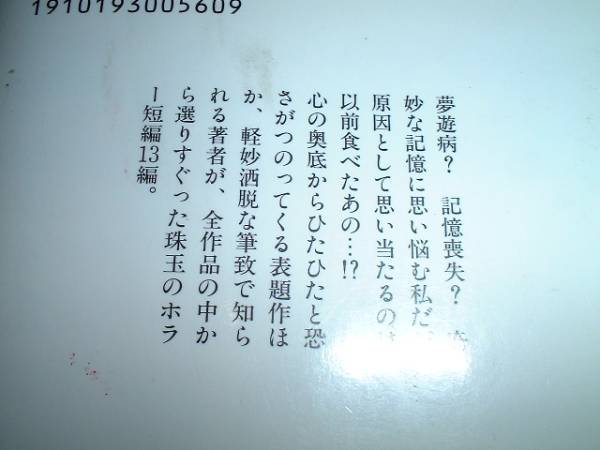 1910193005609
夢遊病？　記憶喪失？
妙な記憶に思い悩む私だ
原因として思い当たるのは
以前食べたあの…!?
心の奥底からひたひたと恐
さがつのってくる表題作ほ
か、軽妙洒脱な筆致で知ら
れる著者が、全作品の中か
ら選りすぐった珠玉のホラ
ー短編13編。